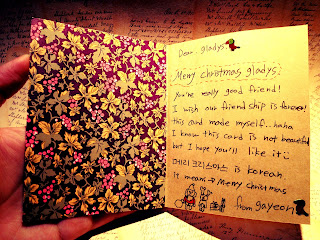 Dear. gladys
Merry christmas gladys!
You're really good friend!
I wish our friendship is forever!
this card made myself...haha
I know this card is not beautiful
but I hope you'll like it
메리 크리스마스 is korean
it means → Merry christmas
from gayeon